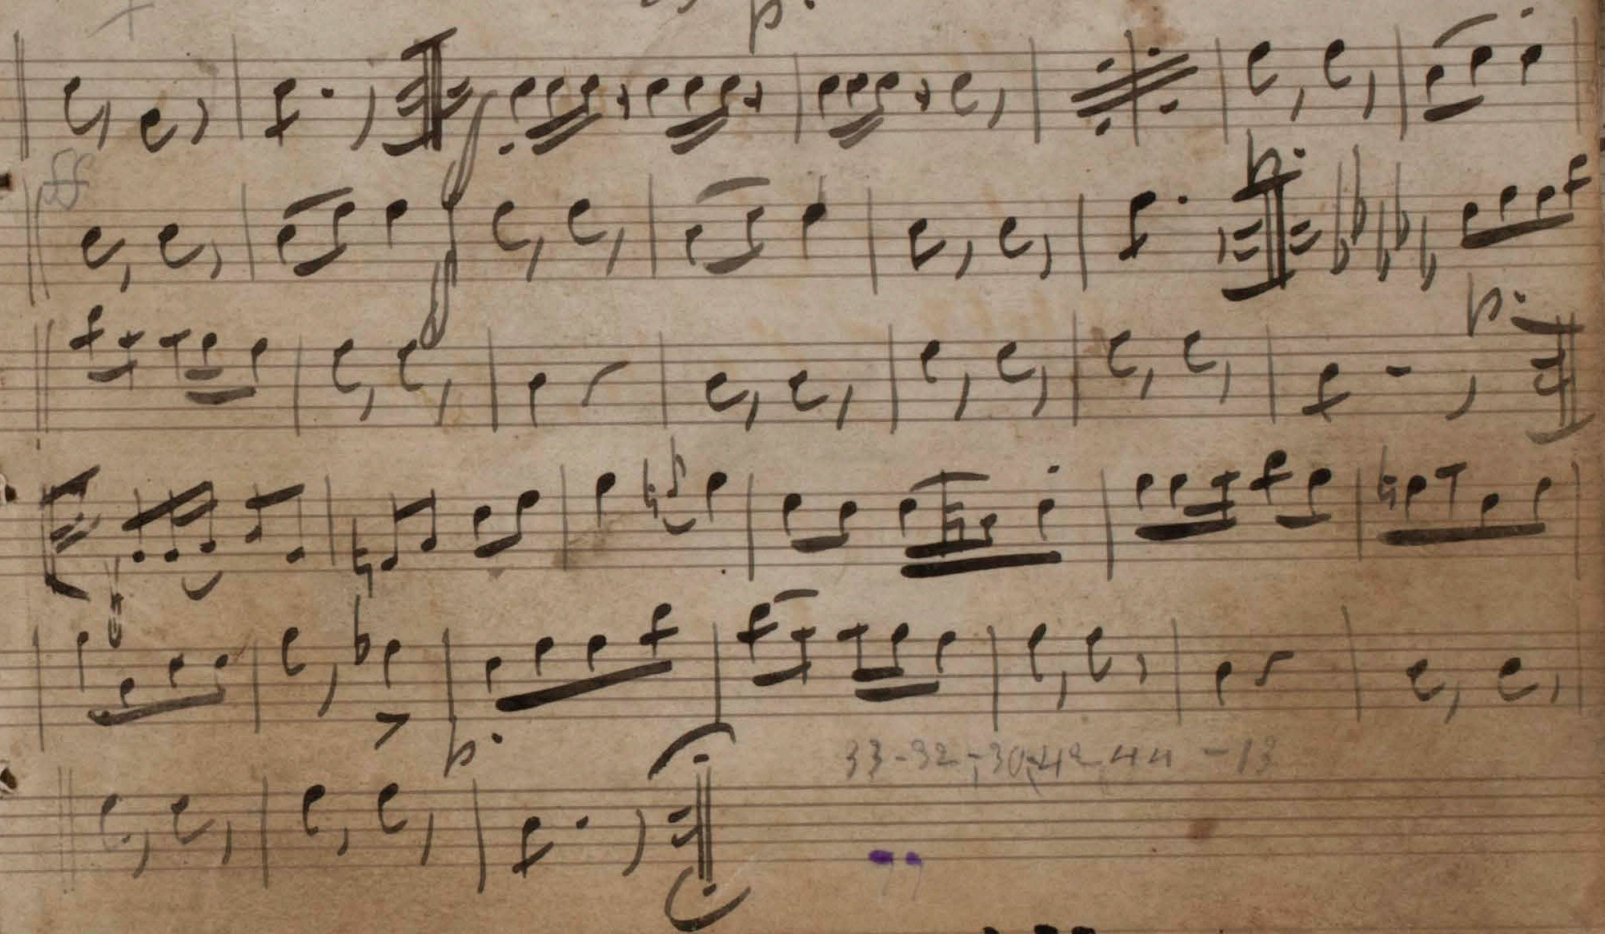 p.
ff
p.
p.
p.
33-32-30-42-44-13